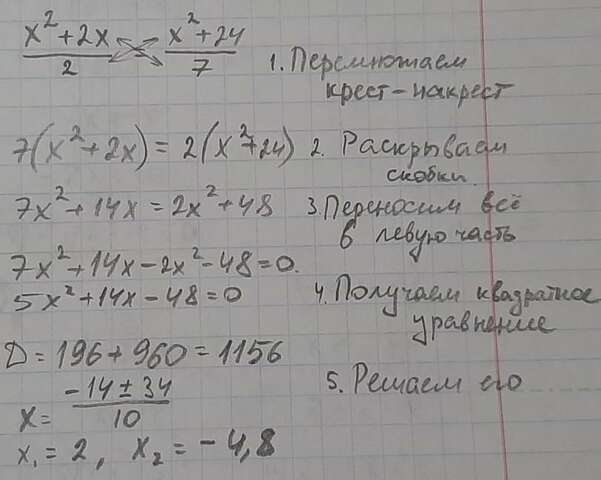 x² + 2x / 2 = x² + 24 / 7
1. Перемножаем
крест-накрест
7(x² + 2x) = 2(x² + 24)
2. Раскрываем
скобки.
7x² + 14x = 2x² + 48
3. Переносим всё
в левую часть
7x² + 14x - 2x² - 48 = 0.
5x² + 14x - 48 = 0
4. Получаем квадратное
уравнение
D = 196 + 960 = 1156
x = -14 ± 34 / 10
5. Решаем его
x₁ = 2, x₂ = -4,8